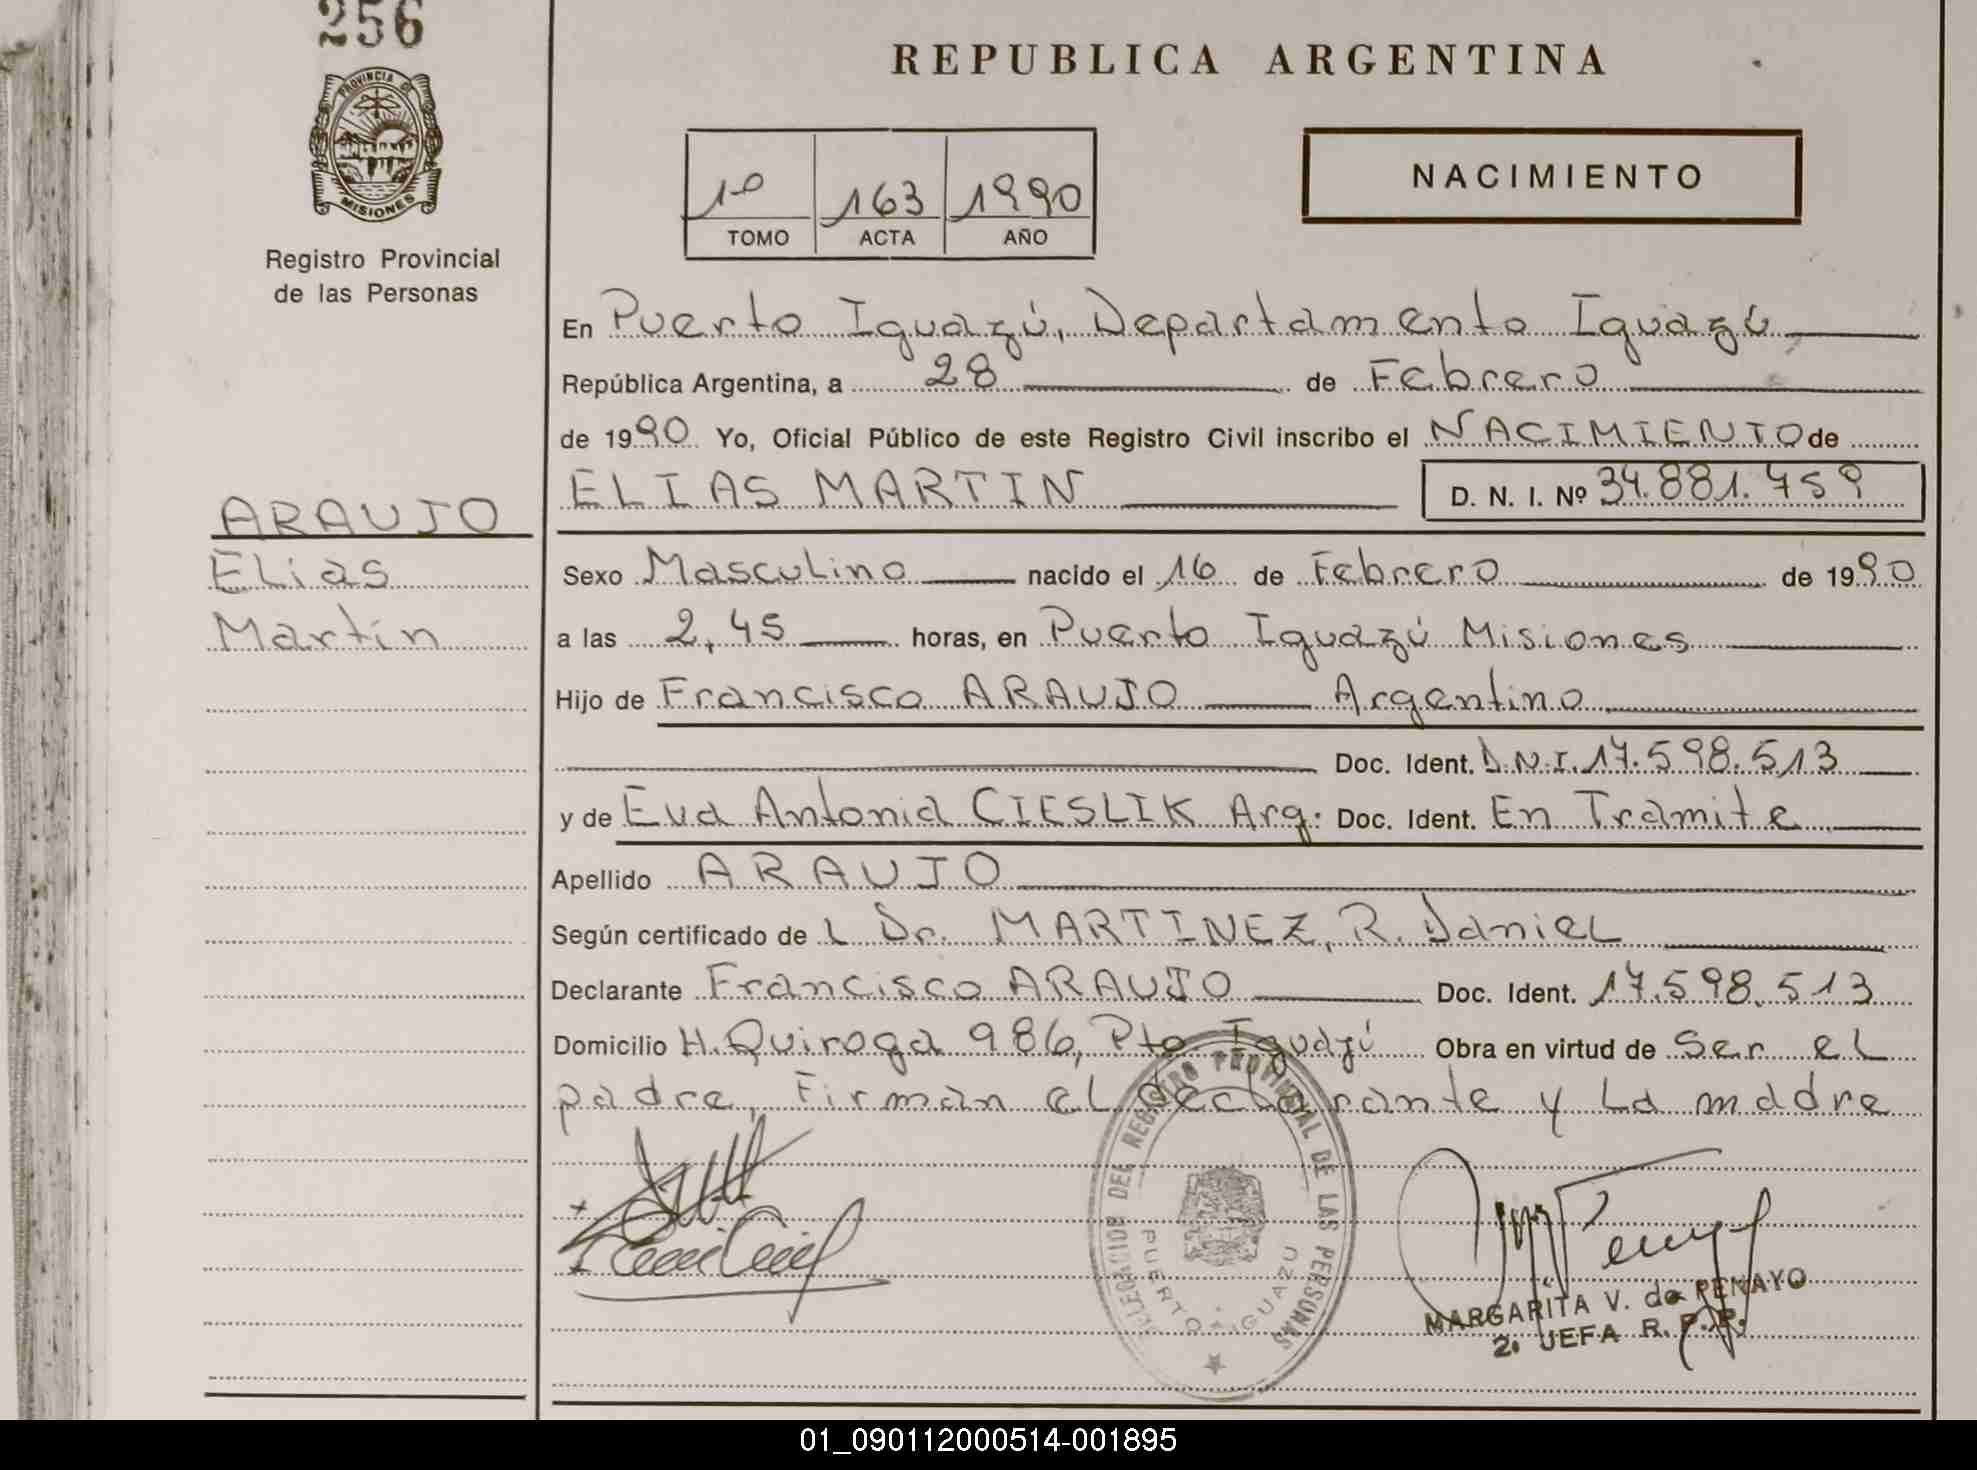 256
PROVINCIA DE
MISIONES
Registro Provincial
de las Personas
ARAUJO
Elias
Martín
REPUBLICA ARGENTINA
1º 163 1990
TOMO ACTA AÑO
NACIMIENTO
En Puerto Iguazú, Departamento Iguazú
República Argentina, a 28 de Febrero
de 1990 Yo, Oficial Público de este Registro Civil inscribo el NACIMIENTO de
ELIAS MARTIN D. N. I. Nº 34.881.759
Sexo Masculino nacido el 16 de Febrero de 1990
a las 2,45 horas, en Puerto Iguazú Misiones
Hijo de Francisco ARAUJO Argentino
Doc. Ident. D.N.I. 17.598.513
y de Eva Antonia CIESLIK Arg: Doc. Ident. En Tramite
Apellido ARAUJO
Según certificado de L Dr. MARTINEZ, R. Daniel
Declarante Francisco ARAUJO Doc. Ident. 17.598.513
Domicilio H. Quiroga 986, Pto Iguazú Obra en virtud de Ser el
padre, Firman el declarante y La madre
DELEGACION DEL REGISTRO PROVINCIAL DE LAS PERSONAS
PUERTO IGUAZU
MARGARITA V. de PENAYO
2. JEFA R. P. P.
01_090112000514-001895